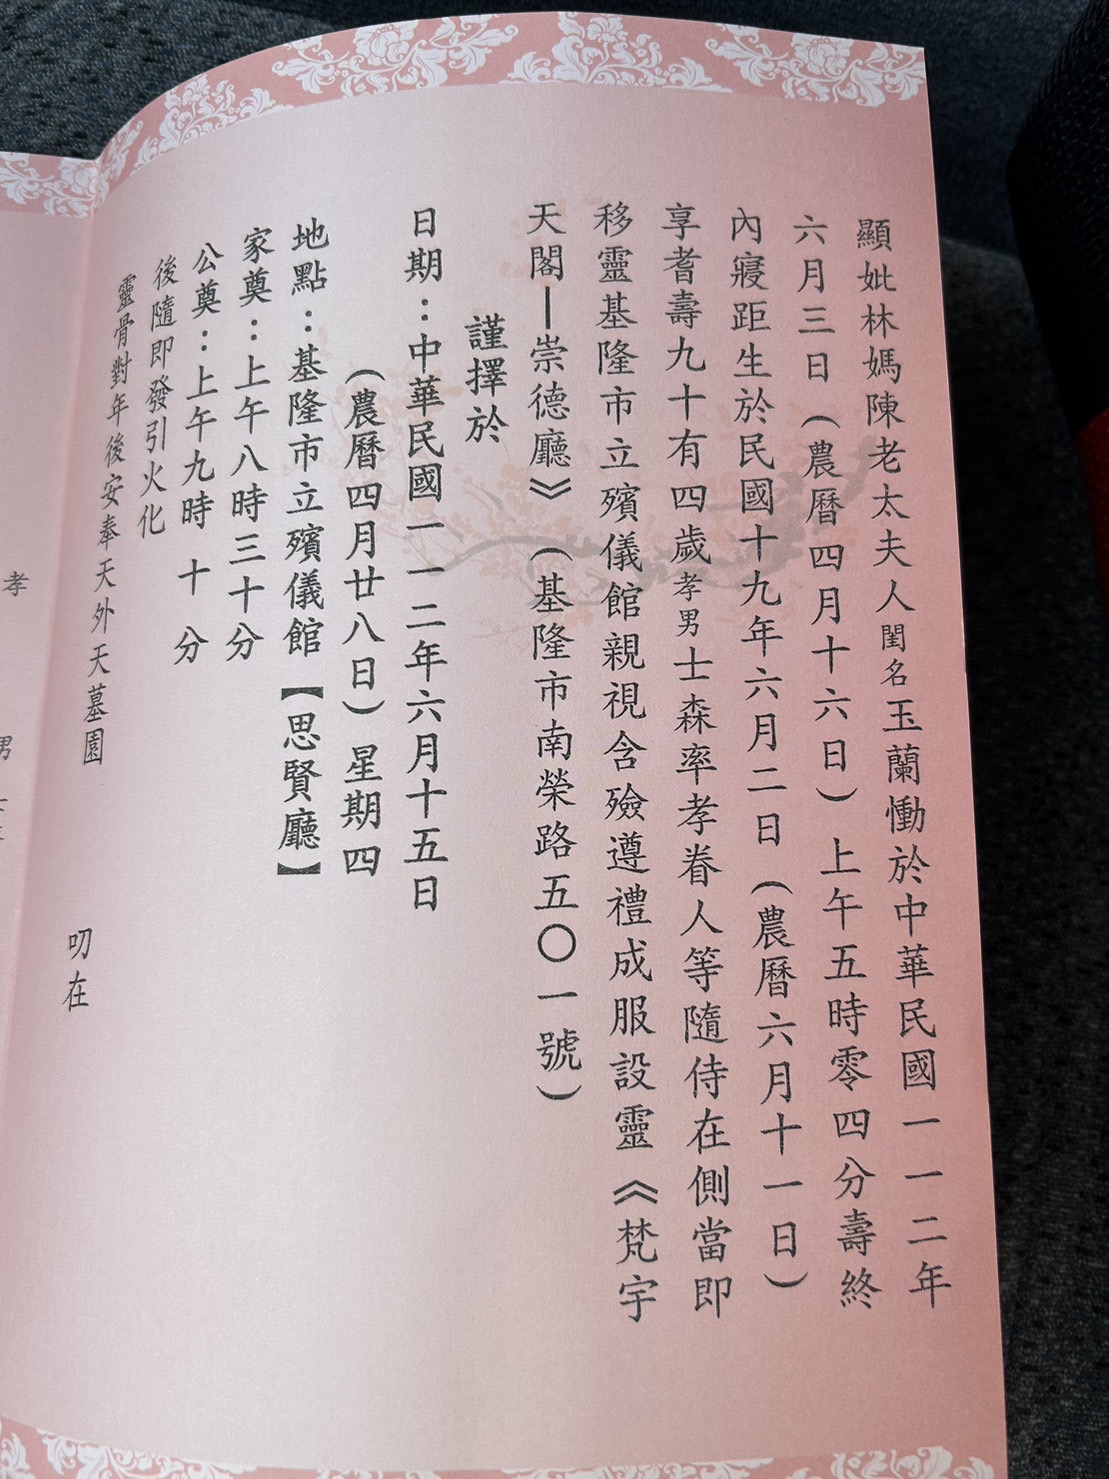 顯妣林媽陳老太夫人閨名玉蘭慟於中華民國一一二年
六月三日（農曆四月十六日）上午五時零四分壽終
內寢距生於民國十九年六月二日（農曆六月十一日）
享耆壽九十有四歲孝男士森率孝眷人等隨侍在側當即
移靈基隆市立殯儀館親視含殮遵禮成服設靈《梵宇
天閣—崇德廳》（基隆市南榮路五〇一號）
謹擇於
日期：中華民國一一二年六月十五日
（農曆四月廿八日）星期四
地點：基隆市立殯儀館【思賢廳】
家奠：上午八時三十分
公奠：上午九時 十 分
後隨即發引火化
靈骨對年後安奉天外天墓園
叨在
孝
男